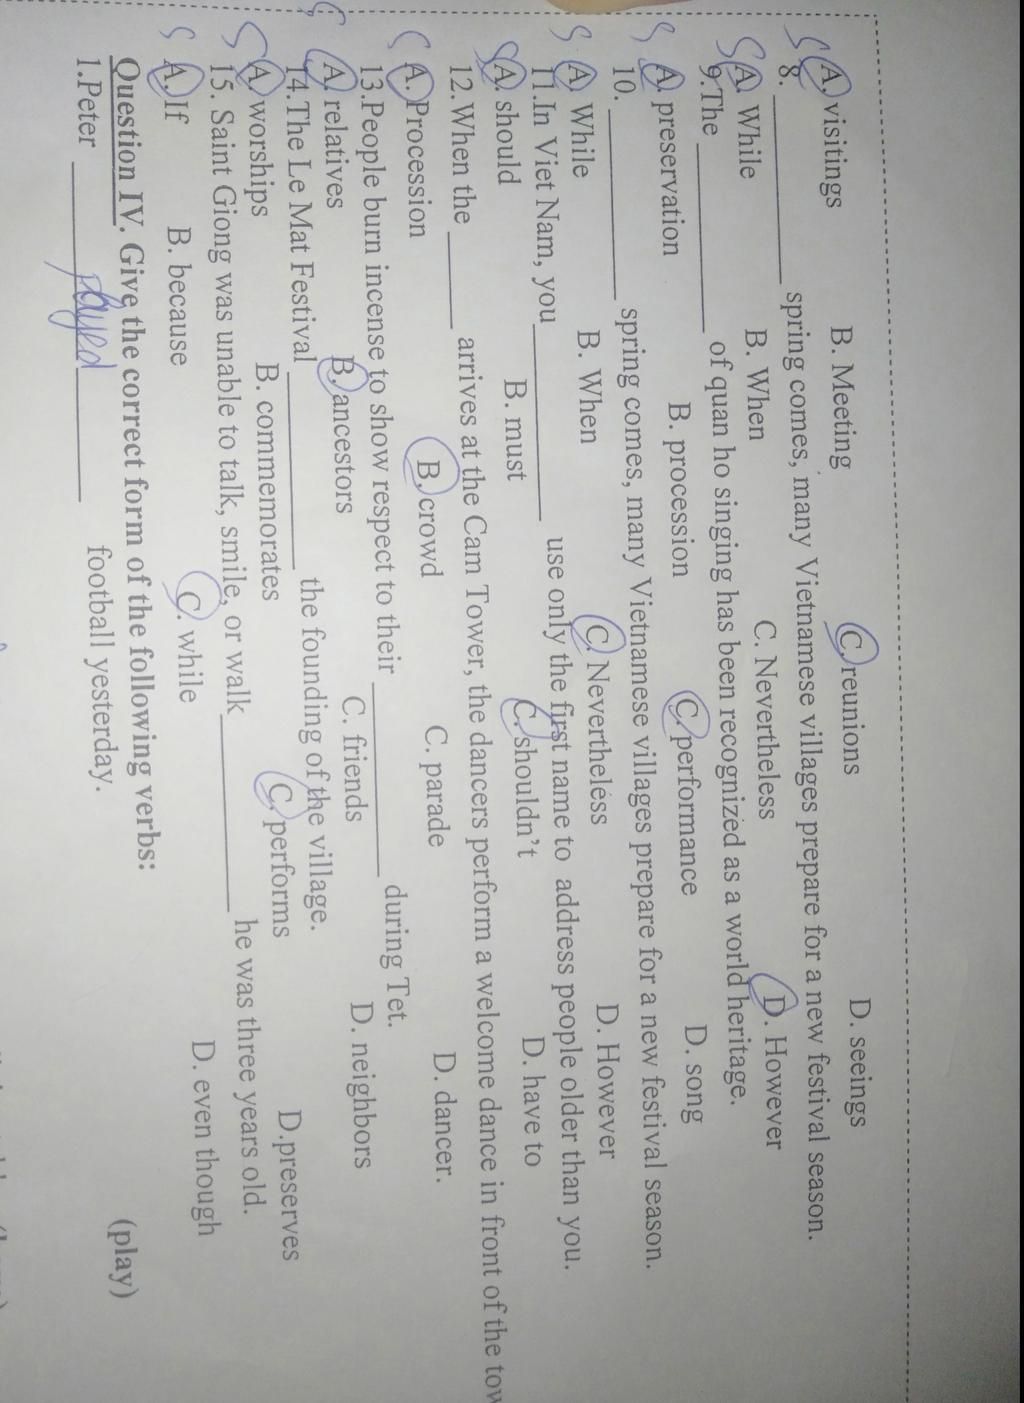 A. visitings B. Meeting C. reunions D. seeings
8. ________ spring comes, many Vietnamese villages prepare for a new festival season.
A. While B. When C. Nevertheless D. However
9.The ________ of quan ho singing has been recognized as a world heritage.
A. preservation B. procession C. performance D. song
10. ________ spring comes, many Vietnamese villages prepare for a new festival season.
A. While B. When C. Nevertheless D. However
11.In Viet Nam, you ________ use only the first name to address people older than you.
A. should B. must C. shouldn't D. have to
12.When the ________ arrives at the Cam Tower, the dancers perform a welcome dance in front of the tow
A. Procession B. crowd C. parade D. dancer.
13.People burn incense to show respect to their ________ during Tet.
A. relatives B. ancestors C. friends D. neighbors
14.The Le Mat Festival ________ the founding of the village.
A. worships B. commemorates C. performs D.preserves
15. Saint Giong was unable to talk, smile, or walk ________ he was three years old.
A. If B. because C. while D. even though
Question IV. Give the correct form of the following verbs:
1.Peter played football yesterday. (play)